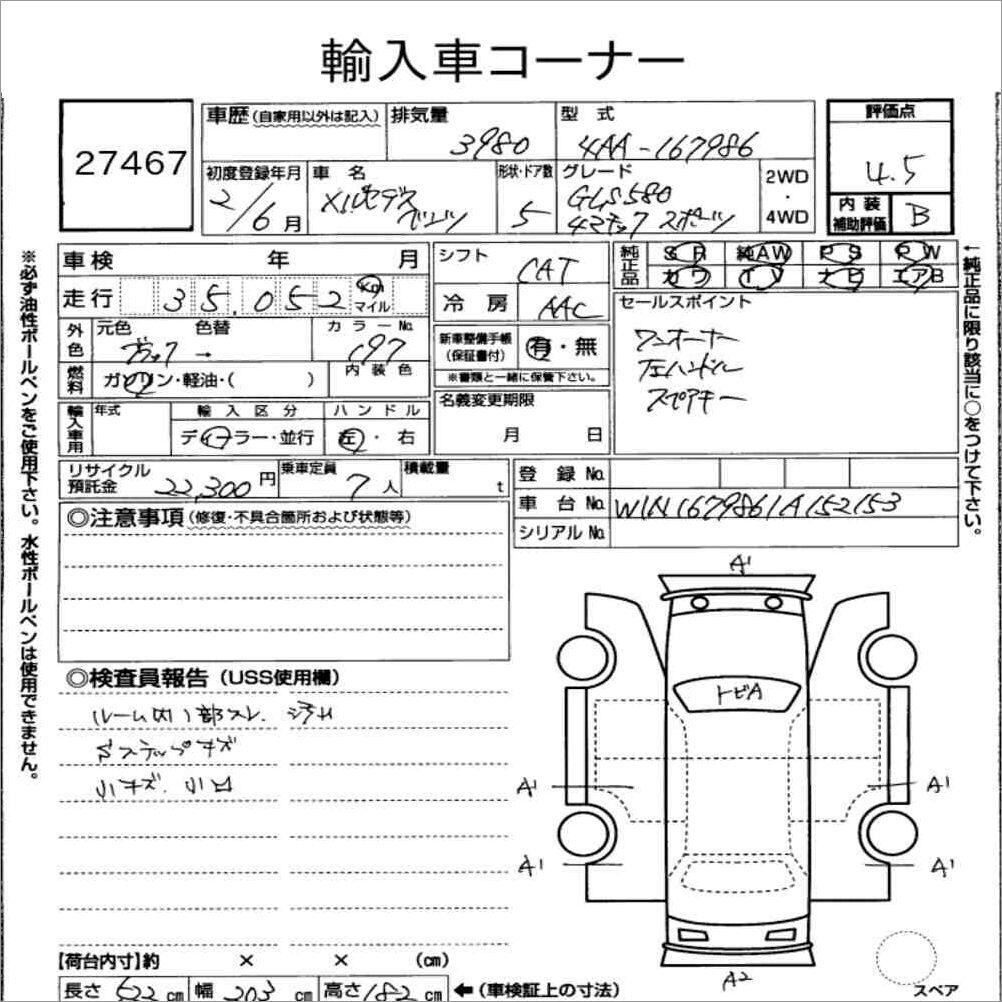 輸入車コーナー
27467
車歴（自家用以外は記入） 排気量 3980 型式 4AA-167986
評価点 4.5
初度登録年月 2/6月 車名 メルセデスベンツ 形状・ドア数 5 グレード GLS580 4マチック スポーツ 2WD・4WD
内装補助評価 B
車検 年 月 シフト CAT
純正品 SR 純AW PS PW
カワ TV ナビ エアB
走行 35,052 km マイル 冷房 AAC
セールスポイント
ワンオーナー
左ハンドル
スペアキー
外色 元色 ブラック 色替 → カラーNo. 197
新車整備手帳（保証書付） 有・無
※書類と一緒に保管下さい。
燃料 ガソリン・軽油・（ ） 内装色
名義変更期限 月 日
輸入車用 年式 輸入区分 ハンドル
ディーラー・並行 左・右
リサイクル預託金 22,300円 乗車定員 7人 積載量 t
登録No.
車台No. W1N1679861A152153
シリアルNo.
◎注意事項（修復・不具合箇所および状態等）
◎検査員報告（USS使用欄）
ルーム内 内部スレ、汚れ
Sステップキズ
小キズ、小凹
A1
トビA
A1 A1
A1 A1
A2
スペア
【荷台内寸】約 × × (cm)
長さ 522 cm 幅 203 cm 高さ 182 cm ←（車検証上の寸法）
※必ず油性ボールペンをご使用下さい。水性ボールペンは使用できません。
←純正品に限り該当に○をつけて下さい。